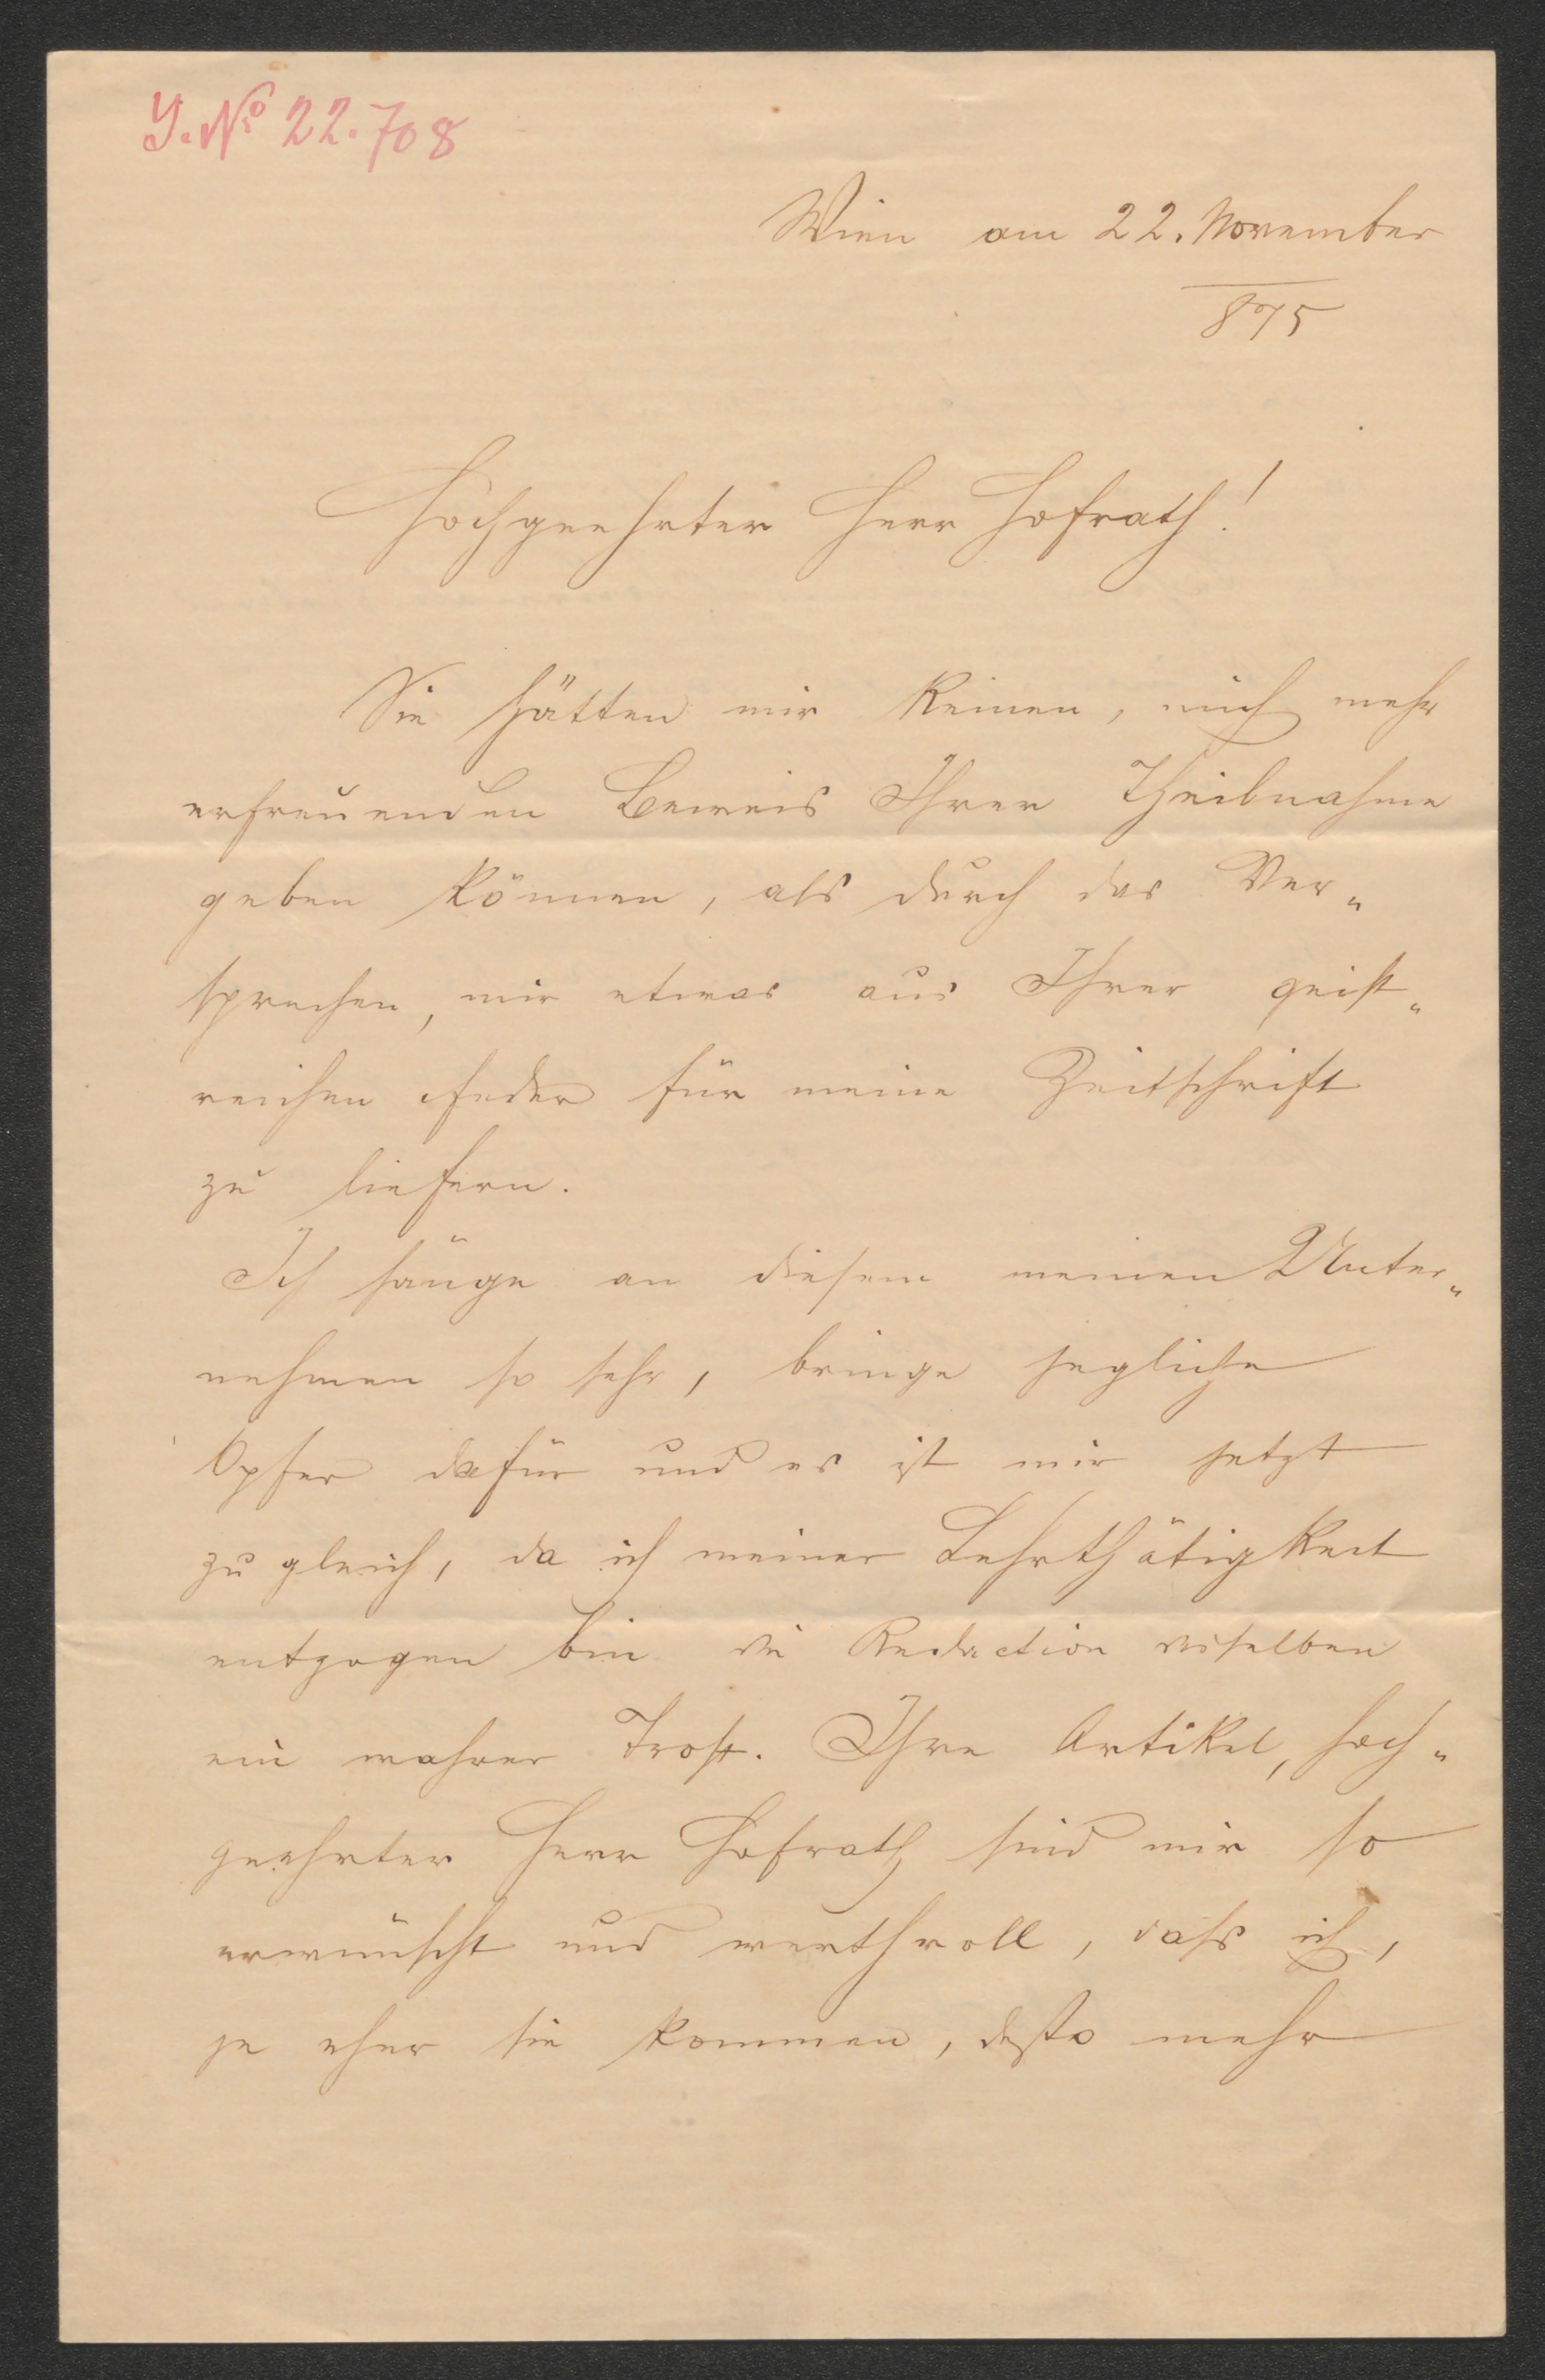 J. No 22.708
Wien am 22. November
875
Hochgeehrter Herr Hofrath!
Sie hätten mir keinen, mich mehr
erfreuenden Beweis Ihrer Theilnahme
geben können, als durch das Ver„
sprechen, mir etwas aus Ihrer geist„
reichen Feder für meine Zeitschrift
zu liefern.
Ich hänge an diesem meinen Unter„
nehmen so sehr, bringe jegliche
Opfer dafür und es ist mir jetzt
zu gleich, da ich meiner Lehrthätigkeit
entzogen bin die Redaction desselben
ein wahrer Trost. Ihre Artikel, hoch„
geehrter Herr Hofrath sind mir so
erwünscht und werthvoll, dass ich,
je eher sie kommen, desto mehr